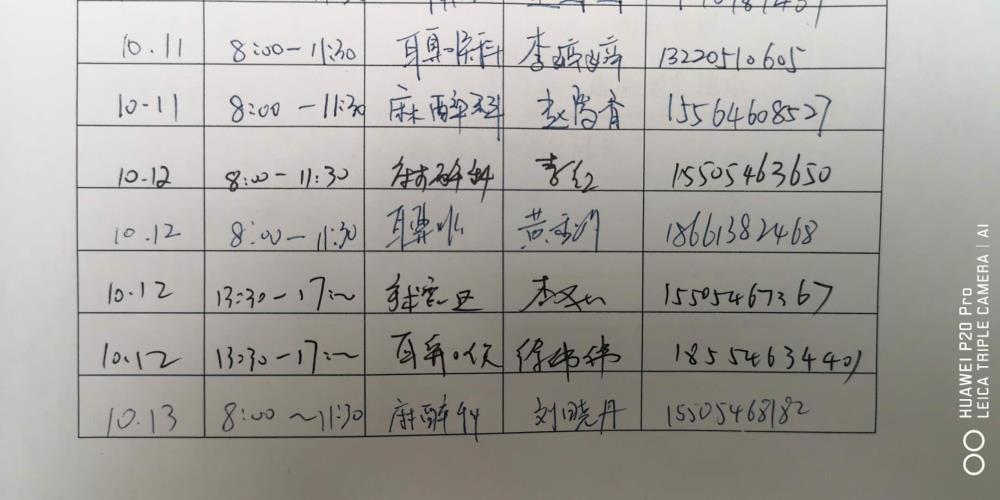 10.11 8:00-11:30 耳鼻喉科 李 13220510605
10-11 8:00-11:30 麻醉科 赵 香 15564608527
10.12 8:00-11:30 科 李红 15505463650
10.12 8:00-11:30 耳鼻喉 黄 18661382468
10.12 13:30-17:~ 15505467367
10.12 13:30-17:~ 耳鼻喉 徐伟伟 18554634401
10.13 8:00~11:30 麻醉科 刘晓丹 15505468182
HUAWEI P20 Pro
LEICA TRIPLE CAMERA | AI